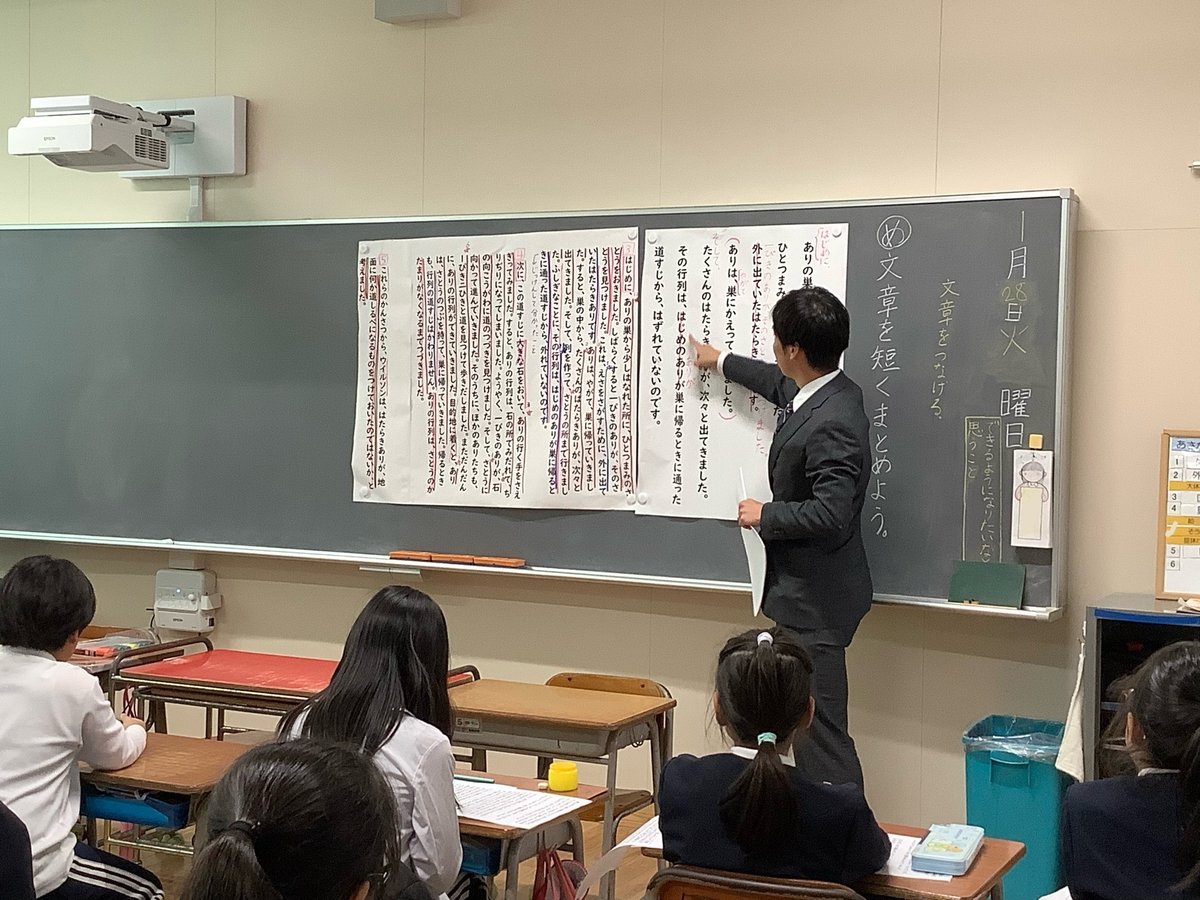 一月28日火曜日
できるようになりたいな
思うこと
文章をつなげる
め 文章を短くまとめよう。
はじめに、
ありの巣
ひとつまみ
外に出ていたはたらき す。
ありは、巣にかえって ました。
たくさんのはたらき が、次々と出てきました。
その行列は、はじめのありが巣に帰るときに通った
道すじから、はずれていないのです。
3 はじめに、ありの巣から少しはなれた所に、ひとつまみのさ
とうをおきました。しばらくすると、一ぴきのありが、そのさ
とうを見つけました。これは、えさをさがすために、外に出て
いたはたらきありです。ありは、やがて、巣に帰っていきまし
た。すると、巣の中から、たくさんのはたらきありが、次々と
出てきました。そして、列を作って、さとうの所まで行きまし
た。ふしぎなことに、その行列は、はじめのありが巣に帰ると
きに通った道すじから、外れていないのです。
4 次に、この道すじに大きな石をおいて、ありの行く手をさえ
ぎってみました。すると、ありの行列は、石の所でみだれて、ち
りぢりになってしまいました。ようやく、一ぴきのありが、石
の向こうがわに道のつづきを見つけました。そして、さとうに
向かって進んでいきました。そのうちに、ほかのありたちも、
一ぴき二ひきと道を見つけて歩きだしました。まただんだん
に、ありの行列ができていきました。目的地に着くと、あり
は、さとうのつぶを持って、巣に帰っていきました。帰るとき
も、行列の道すじはかわりません。ありの行列は、さとうのか
たまりがなくなるまでつづきました。
5 これらのかんさつから、ウイルソンは、はたらきありが、地
面に何か道しるべになるものをつけておいたのではないか、と
考えました。
EPSON